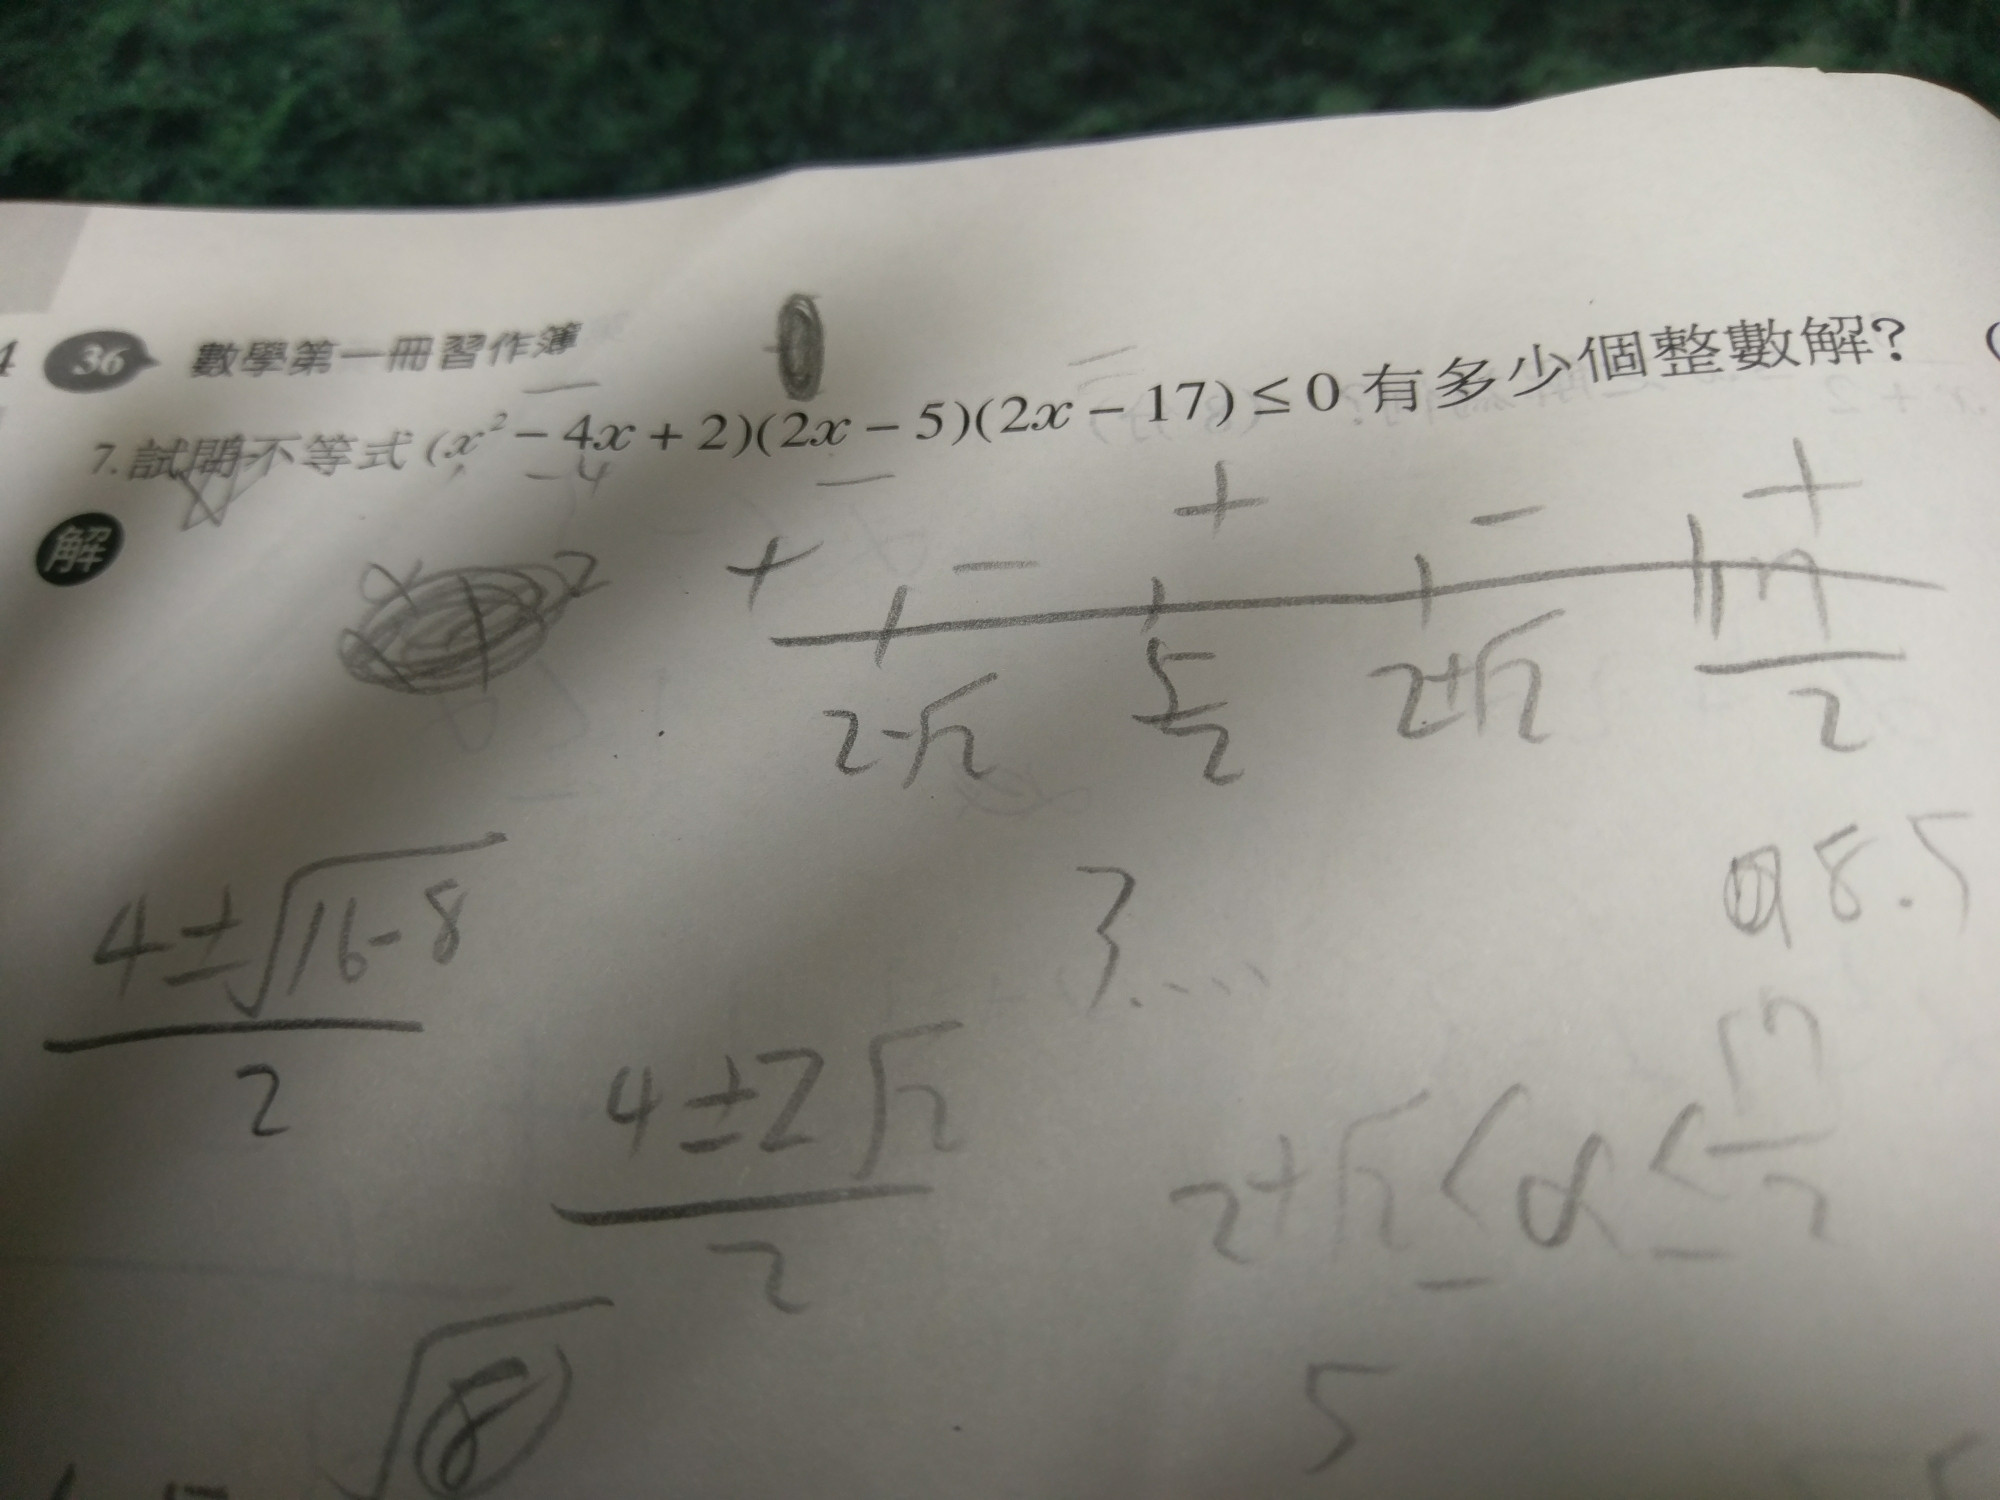 36 數學第一冊習作簿
7.試問不等式(x² − 4x + 2)(2x − 5)(2x − 17) ≤ 0 有多少個整數解? (
解
+ − + − +
2-√2 5/2 2+√2 17/2
8.5
4±√16-8 / 2
3....
4±2√2 / 2
2+√2 ≤ x ≤ 17/2
√8
5